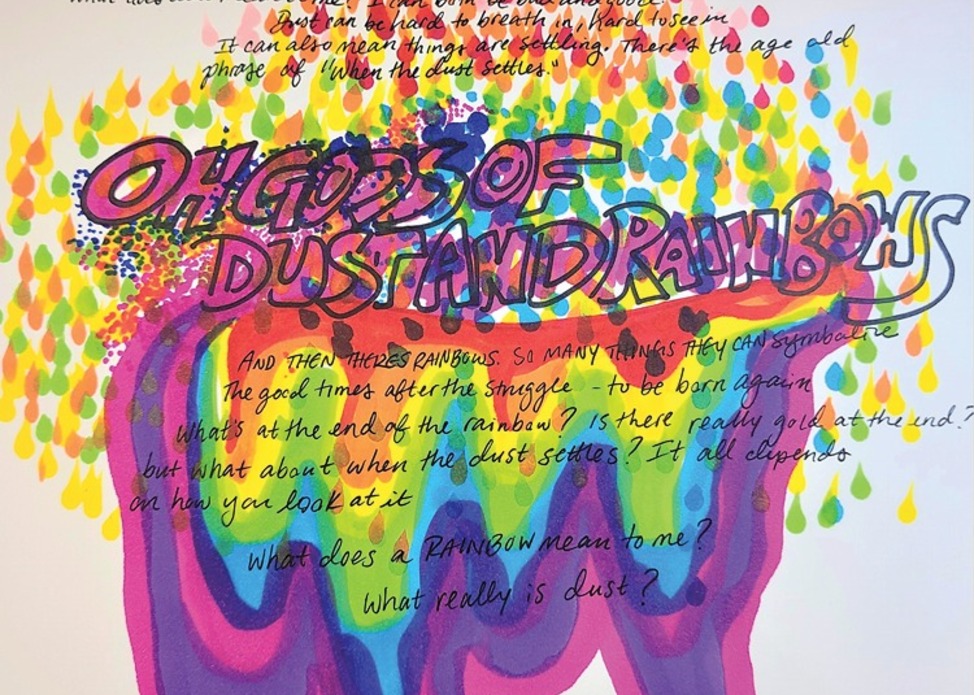 me? I can both be bad and good.
Dust can be hard to breath in, hard to see in
It can also mean things are settling. There's the age old
phrase of "When the dust settles."
OH GODS OF
DUST AND RAINBOWS
AND THEN THERES RAINBOWS. SO MANY THINGS THEY CAN symbalize
The good times after the struggle - to be born again
what's at the end of the rainbow? Is there really gold at the end?
but what about when the dust settles? It all dipends
on how you look at it
What does a RAINBOW mean to me?
What really is dust?